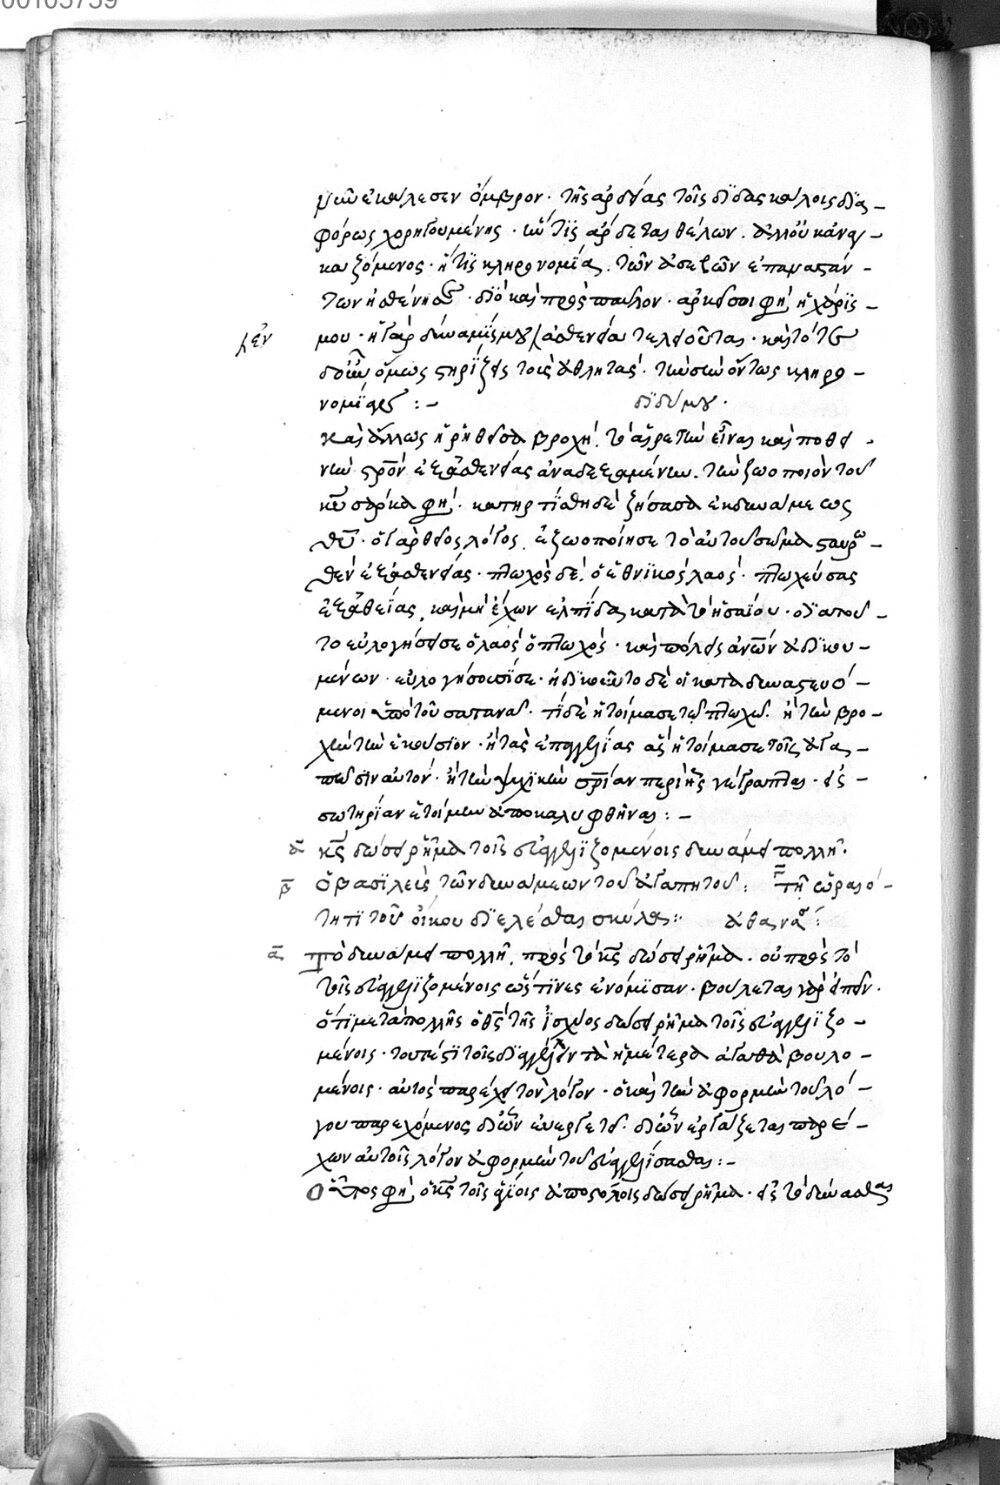 00105759
μῶν ἐκάλεσεν ὄμβρον · τῆς ἀρδείας τοῖς διδασκάλοις δια-
φόρως χορηγουμένης · τίς θέλων · ἀλλ' οὐκ ἀναγ-
καζόμενος · ἥτις κληρονομία · τῶν ἀσεβῶν ἐπαναστάν-
των ἠσθένησε · διὸ καὶ πρὸς παῦλον · ἀρκεῖ σοι φησὶ ἡ χάρις
ἐν
μου · ἡ γὰρ δύναμίς μου ἀσθενεία τελειοῦται · καὶ τότε
ὅμως στηρίζεις τοὺς ἀθλητάς · τὴν σὴν ὄντως κληρο-
νομίαν :-
διδύμου ·
καὶ ἄλλως ἡ ῥηθεῖσα βροχή · αἱρετὴν εἶναι καὶ ποθει-
νὴν ἐξ ἀσθενείας ἀναδεξαμένην · τὴν ζωοποιὸν τοῦ
κυ σάρκα φησί · κατηρτίσθη δὲ ζήσασα ἐκ δυνάμεως
θυ · ὁ γὰρ θεὸς λόγος ἐζωοποίησε τὸ αὐτοῦ σῶμα σταυρω-
θὲν ἐξ ἀσθενείας · πτωχὸς δὲ ὁ ἐθνικὸς λαός · πτωχεύσας
ἐξ ἀθεΐας · καὶ μὴ ἔχων ἐλπίδα κατὰ τὸν ἡσαΐου · διὰ τοῦ-
το εὐλογήσει σε ὁ λαὸς ὁ πτωχός · καὶ πόλεις ἀνων ἀδικου-
μένων · εὐλογήσουσί σε · ἠδικοῦντο δὲ οἱ καταδυναστευό-
μενοι ἀπὸ τοῦ σατανᾶ · τί δὲ ἡτοίμασε τῷ πτωχῷ · ἢ τὴν βρο-
χὴν τὴν ἑκούσιον · ἢ τὰς ἐπαγγελίας ἃς ἡτοίμασε τοῖς ἀγα-
πῶσιν αὐτόν · ἢ τὴν ψυχικὴν σρίαν περὶ ἧς γέγραπται · εἰς
σωτηρίαν ἑτοίμην ἀποκαλυφθῆναι :-
α κς δώσει ῥῆμα τοῖς εὐαγγελιζομένοις δυνάμει πολλῇ ·
β ὁ βασιλεὺς τῶν δυνάμεων τοῦ ἀγαπητοῦ : τῇ ὡραιό-
τητι τοῦ οἴκου διελέσθαι σκῦλα : ἀθανα :
α τὸ δυνάμει πολλῇ, πρὸς τὸ κς δώσει ῥῆμα · οὐ πρὸς τὸ
τοῖς εὐαγγελιζομένοις ὥς τινες ἐνόμισαν · βούλεται γὰρ εἰπεῖν ·
ὅτι μετὰ πολλῆς ὁ θς τῆς ἰσχύος δώσει ῥῆμα τοῖς εὐαγγελιζο-
μένοις · τουτέστι τοῖς διαγγέλλειν τὰ ἡμέτερα ἀγαθὰ βουλο-
μένοις · αὐτὸς παρέχει τὸν λόγον · ὁ καὶ τὴν ἀφορμὴν τοῦ λό-
γου παρεχόμενος δι' ὧν εὐεργετεῖ · δι' ὧν ἐργάζεται παρέ-
χων αὐτοῖς λόγον ἀφορμὴν τοῦ εὐαγγελίσασθαι :-
Οὗτος φησὶ ὁ κς τοῖς ἁγίοις ἀποστόλοις δώσει ῥῆμα · εἰς τὸ δύνασθαι